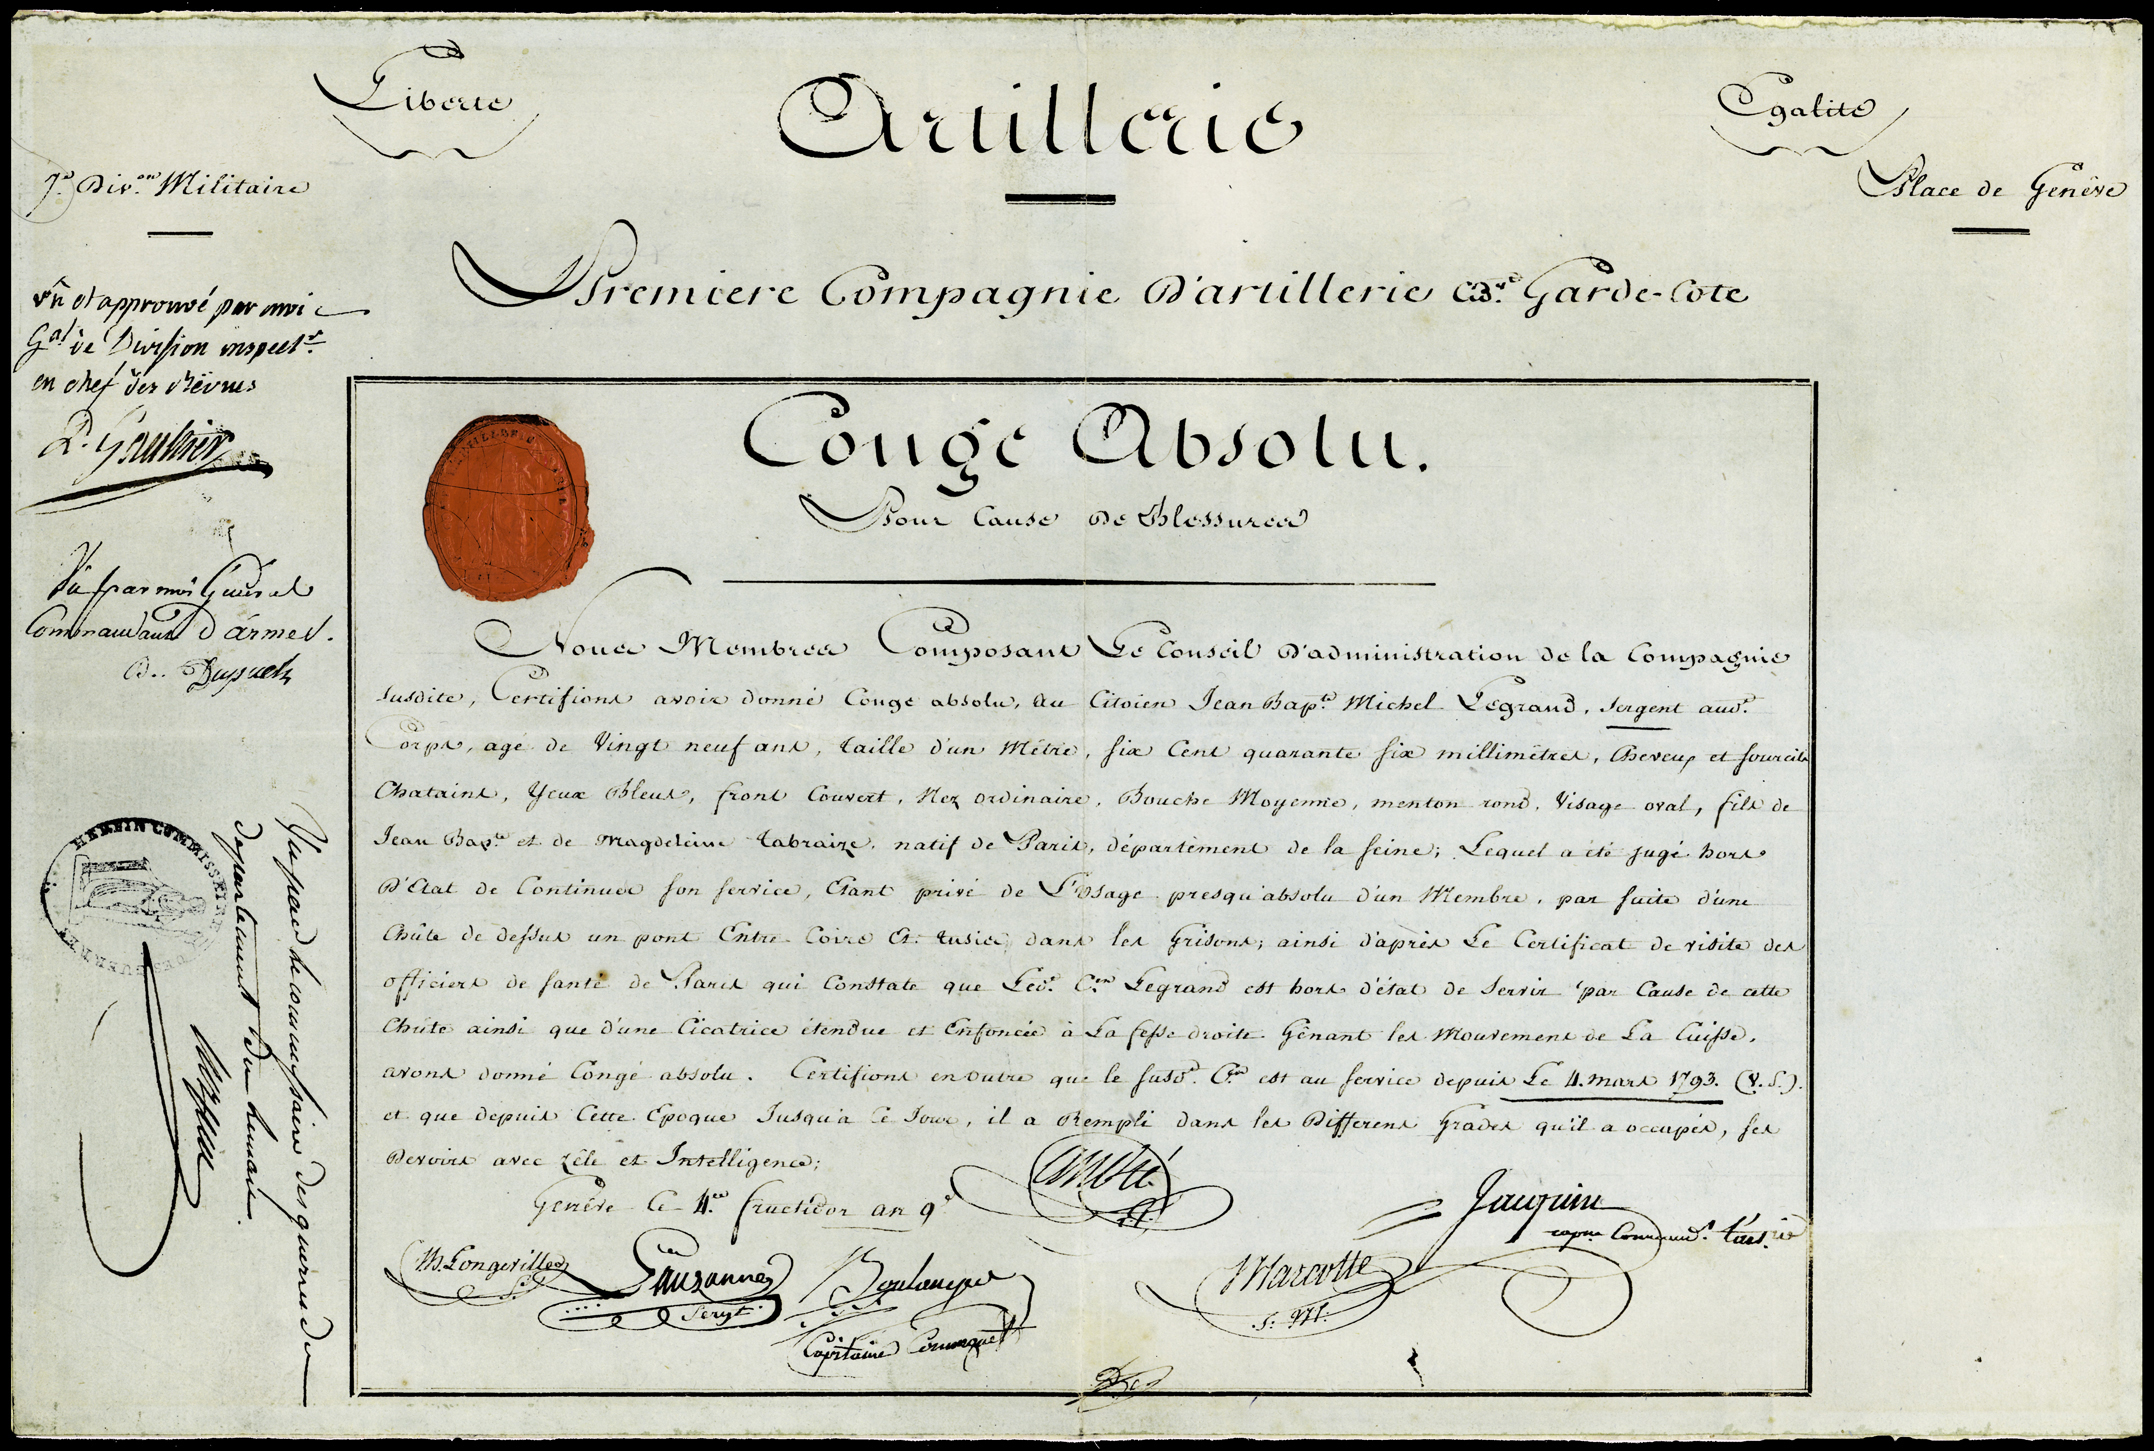 Liberte
Artillerie
Egalité
7.e Div.on Militaire
Place de Genêve
Premiere Compagnie D'artillerie Garde-Cote
vû et approuvé par moi
G.al de Division inspect.r
en chef des Revues
Conge Absolu.
Pour Cause de Blessures
Vû par moi Général
Commandant D'ármes.
Nous Membres Composant Le Conseil D'administration de la Compagnie
susdite, Certifions avoir donné Congé absolu, au Citoien Jean Bap.te Michel Legrand, Sergent aud.t
Corps, agé de Vingt neuf ans, taille d'un Mêtre, six Cent quarante six millimêtres, Cheveux et sourcils
Chatains, Yeux Bleus, front Couvert, Nez ordinaire, Bouche Moyenne, menton rond, Visage oval, fils de
Jean Bap.te et de Magdeleine Labraize, natif de Paris, département de la Seine; Lequel a été jugé hors
D'Etat de Continuer son service, Etant privé de L'Usage presqu'absolu d'un Membre, par suite d'une
Chûte de dessus un pont Entre Coire et Tusis, dans les Grisons; ainsi d'après Le Certificat de visite des
officiers de santé de Paris qui Constate que Led.t C.en Legrand est hors d'état de Servir par Cause de cette
Chûte ainsi que d'une Cicatrice étendue et Enfoncée à La fesse droite Gênant les Mouvement de La Cuisse,
avons donné Congé absolu. Certifions en outre que le susd.t C.en est au service depuis Le 4. mars 1793. (V.S.).
et que depuis Cette Epoque Jusqu'à Ce Jour, il a Rempli dans les Differens Grades qu'il a occupés, ses
Devoirs avec Zêle et Intelligence;
Genêve Ce 4. fructidor an 9.e
André
Jaquin
Longeville
Lauzanne
Sergt.
Boulanger
Capitaine
Marcotte
Vu par le commissaire des guerres du
departement du Leman.